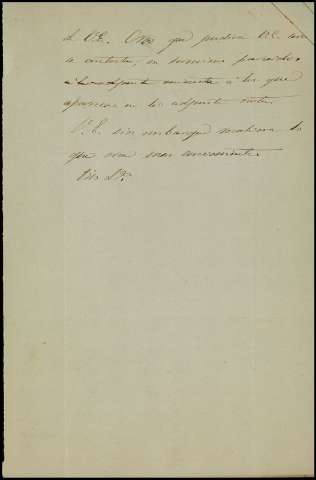 á V.E. Creo que pudiera V.E.
a contestar, en terminos parecidos
á la adjunta minuta á los que
aparecen en la adjunta nota.
V.E. sin embargo resolverá lo
que sea mas conveniente.